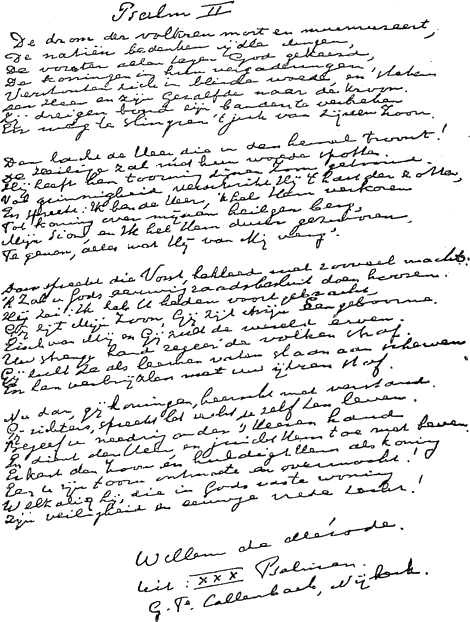 Psalm II
De drom der volkeren mort en murmureert,
De natiën bedenken ijdle dingen,
De vorsten allen tegen God gekeerd,
De koningen in hun vergaderingen,
Verstouten zich in blinde woede, en steken
Den Heer en zijn Gezalfde naar de kroon.
Zij dreigen Zijn banden te verbreken
En weg te slingren 't juk van Zijnen Zoon.
Dan lacht de Heer die in den hemel troont!
De Heilige zal met hun woede spotten.
Hij heeft hen toornig
Vol grimmigheid verschrikt Hij 't hart der zotten,
En spreekt: Ik ben de Heer, 'k heb Hem verkoren
Tot koning over mijnen heilgen berg,
Mijn Sion, en Ik heb Hem duur gezworen,
Te geven, alles wat Hij van Mij verg'.
Dan spreekt die Vorst, bekleed met zooveel macht:
'k Zal u Gods eeuwig raadsbesluit doen hooren.
Hij zei: Ik heb U heden voortgebracht,
Gij zijt Mijn Zoon, Gij zijt Mijn Eengeboorne.
Eisch van Mij en Gij zult de wereld erven.
Uw strenge hand regeer' de volken straf.
Gij zult ze als leemen vaten slaan aan scherven
En hen verbrijzlen met uw ijzren staf.
Nu dan, gij koningen, heerscht met verstand.
O richters, spreekt het recht u zelf ten leven.
Begeef u needrig onder 's Heeren hand
En dient den Heer, en juicht Hem toe met beven.
Erkent den Zoon en huldigt Hem als koning
Eer u zijn toorn ontmoete en overmocht!
Welzalig hij, die in Gods vaste woning
Zijn veiligheid en eeuwge vrede zocht!
Willem de Mérode.
uit: XXX Psalmen.
G. F. Callenbach, Nijkerk.